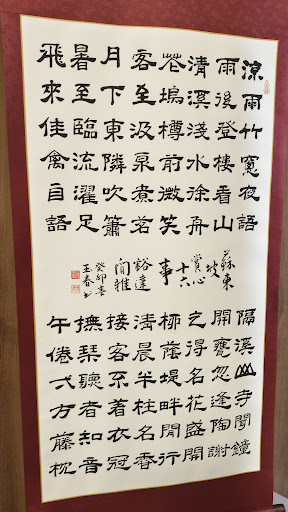 涼雨竹窻夜語
雨後登樓看山
清溪淺水徐舟
花塢樽前微笑
客至汲泉煮茗
月下東隣吹簫
暑至臨流濯足
飛來佳禽自語
蘇東
坡
賞心
十六
事
豁達
閒雅
癸卯春
玉春书
隔溪山寺聞鐘
開甕忽逢陶謝
之得名花盛開
柳蔭堤畔閒行
清晨半柱名香
接客不着衣冠
撫琴聽者知音
午倦弌方藤枕